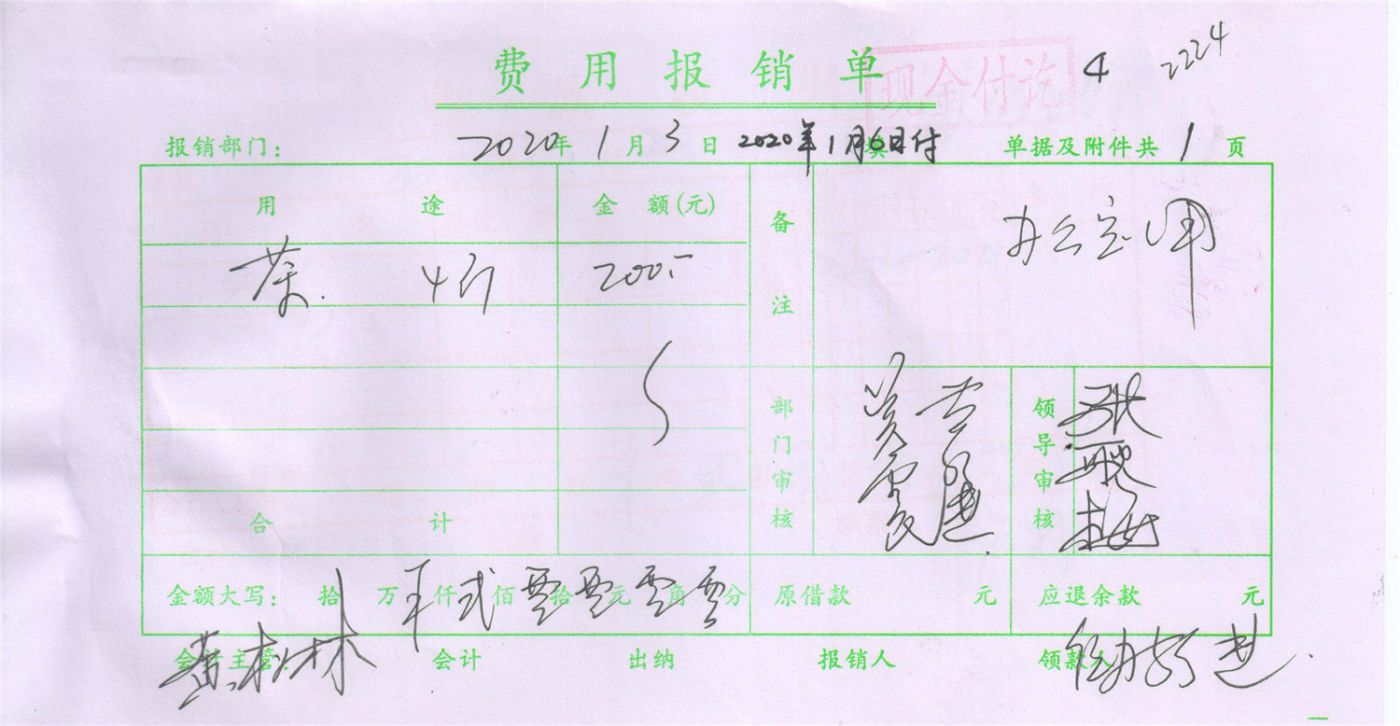 费用报销单
现金付讫
4 2224
报销部门: 2020年1月3日 2020年1月6日付 单据及附件共 1 页
用途 金额(元) 备注 办公室用
茶 4斤 200.-
部门审核 领导审核
合计
金额大写: 拾万仟 贰佰零拾零元零角零分 原借款 元 应退余款 元
黄松林
会计主管: 会计 出纳 报销人 领款人